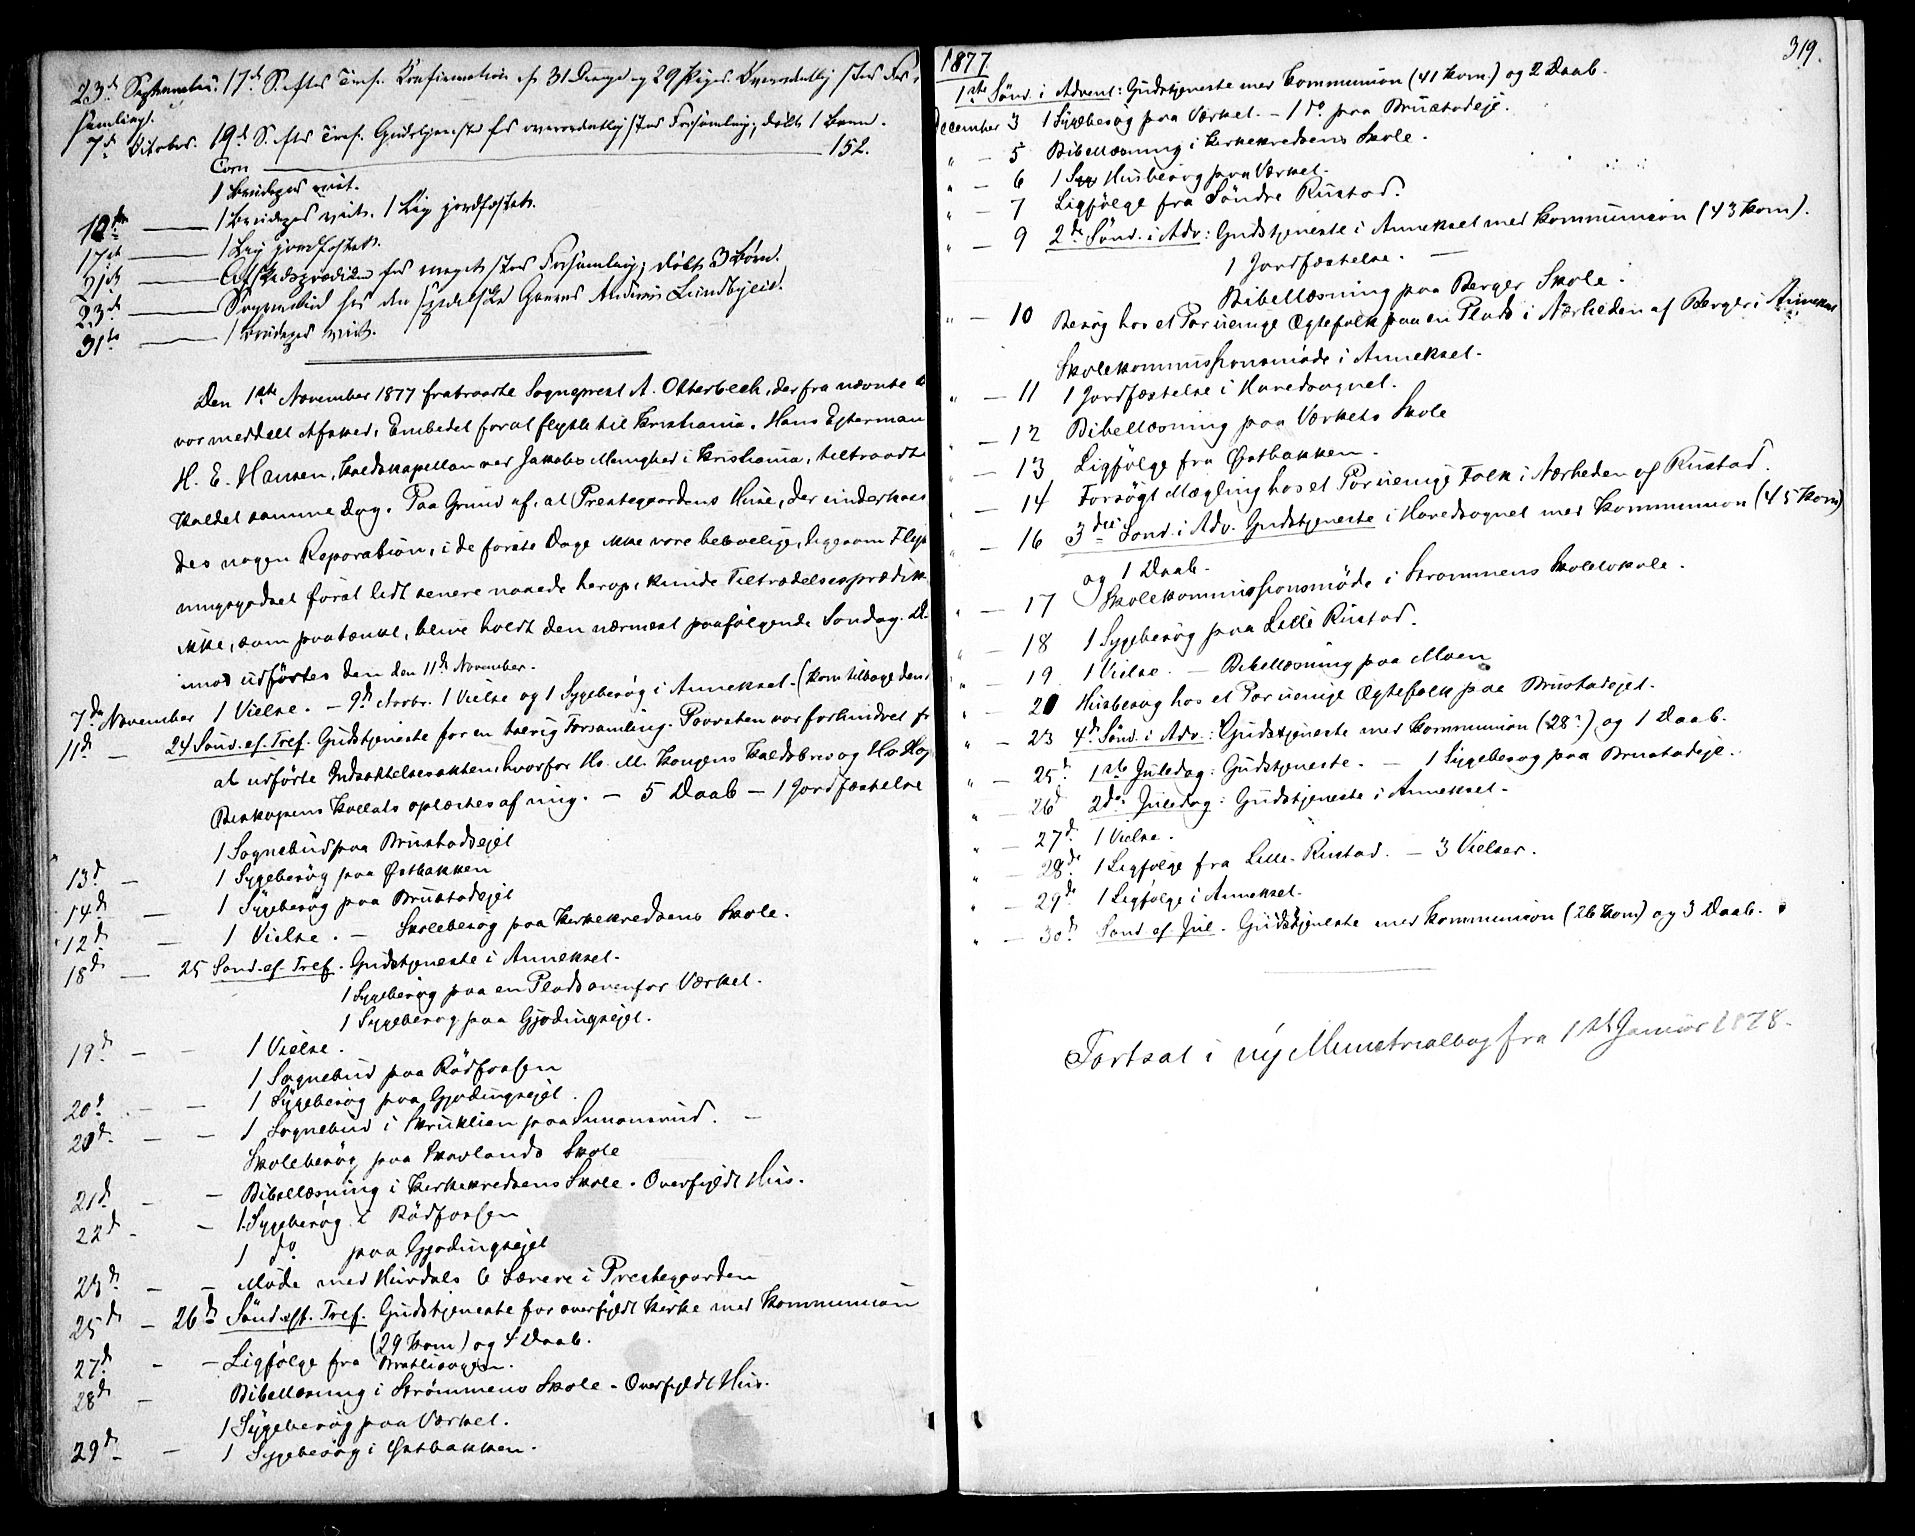 23d September. 17d S. efter Tref. Confirmation af 31 Drenge og 29 Piger. Overordentlig stor For-
samling.
7d October. 19d S. efter Tref. Gudstjeneste for overordentlig stor Forsamling; døbt 1 Barn.
Com 152.
1 Brudepar viet.
12te 1 Brudepar viet. 1 Lig jordfæstet.
17de 1 Lig jordfæstet.
21de Afskedsprædiken for meget stor Forsamling; døbt 3 Børn.
23de Sognebud hos den
31te 1 Brudepar viet.
Den 1ste November 1877 fratraadte Sogneprest A. Otterbech, der fra nævnte
var meddelt Afsked, Embedet for at flytte til Kristiania. Hans Efterman
H. E. Hansen, Kaldskapellan ved Jakobs Menighed i Kristiania, tiltraadte
Kaldet samme Dag. Paa Grund af, at Prestegaardens Huse, der underkas
des nogen Reparation, i de første Dage ikke vare beboelige, ligesom Flyt
ningsgodset først lidt senere naaede herop, kunde Tiltrædelsesprædik
ikke, som paatænkt, blive holdt den nærmest paafølgende Søndag. D.
imod udførtes den den 11te November.
7de November 1 Vielse. – 9de Novbr. 1 Vielse og 1 Sygebesøg i Annekset. (kom tilbage den
11d – 24 Sønd. ef. Tref. Gudstjeneste for en talrig Forsamling. Provsten var forhindret fr
at udføre Indsættelsesakten, hvorfor Hs. M. Kongens Kaldsbrev og Hs Høj
Biskopens Kollats oplæstes af mig. – 5 Daab – 1 Jordfæstelse
1 Sognebud paa Brustadejet
13d – 1 Sygebesøg paa Østbakken
14d – 1 Sygebesøg paa Brustadejet
12d – 1 Vielse. – Skolebesøg paa Kirkekredsens Skole.
18d – 25 Sønd. ef. Tref. Gudstjeneste i Annekset.
1 Sygebesøg paa en Plads ovenfor Værket.
1 Sygebesøg paa Gjødingsejet.
19d – – 1 Vielse.
1 Sognebud paa Rødfossen
20d – – 1 Sygebesøg paa Gjødingsejet.
20d – – 1 Sognebud i Skruklien paa Simonsrud. –
Skolebesøg paa Skavlands Skole
21d – – Bibellæsning i Kirkekredsens Skole. Overfyldt Hus.
22d – – 1 Sygebesøg i Rødfossen
1 do paa Gjødingsejet
23d – – Møde med Hurdals 6 Lærere i Prestegaarden
25d – 26d Sønd. eft. Tref. Gudstjeneste for overfyldt Kirke med Kommunion
(29 Kom) og 4 Daab.
27d – – Ligfølge fra
28d – Bibellæsning i Strømmens Skole – Overfyldt Hus.
1 Sygebesøg paa Værket.
29d – 1 Sygebesøg i Østbakken.
319.
1877
1ste Sønd. i Advent: Gudstjeneste med Kommunion (41 Kom.) og 2 Daab.
December 3 1 Sygebesøg paa Værket. – 1 do paa Brustadeje.
„ – 5 Bibellæsning i Kirkekredsens Skole.
„ – 6 1 Husbesøg paa Værket.
„ – 7 Ligfølge fra Søndre Rustad.
„ – 9 2de Sønd. i Adv: Gudstjeneste i Annekset med Kommunion (43 Kom).
1 Jordfæstelse. –
Bibellæsning paa Berger Skole.
„ – 10 Besøg hos et Par uenige Ægtefolk paa en Plads i Nærheden af Berger i Annekset
Skolekommissionsmøde i Annekset.
„ – 11 1 Jordfæstelse i Hovedsognet.
„ – 12 Bibellæsning paa Værkets Skole
„ – 13 Ligfølge fra Østbakken.
„ – 14 Forsøgt Mægling hos et Par uenige Folk i Nærheden af Rustad.
„ – 16 3die Sønd. i Adv. Gudstjeneste i Hovedsognet med Kommunion (45 Kom)
og 1 Daab.
„ – 17 Skolekommissionsmøde i Strømmens Skolelokale.
„ – 18 1 Sygebesøg paa Lille Rustad.
„ – 19 1 Vielse. – Bibellæsning paa Moen
„ – 20 Husbesøg hos et Par uenige Ægtefolk paa Brustadejet.
„ – 23 4d Sønd. i Adv: Gudstjeneste med Kommunion (28) og 1 Daab.
„ – 25d 1ste Juledag: Gudstjeneste. – 1 Sygebesøg paa Brustadeje.
„ – 26d 2den Juledag: Gudstjeneste i Annekset.
„ – 27d 1 Vielse.
„ – 28d 1 Ligfølge fra Lille-Rustad. – 3 Vielser.
„ – 29d 1 Ligfølge i Annekset.
„ – 30d Sønd ef Jul. Gudstjeneste med Kommunion (26 Kom) og 3 Daab.
Fortsat i ny Ministrialbog fra 1ste Januar 1878.